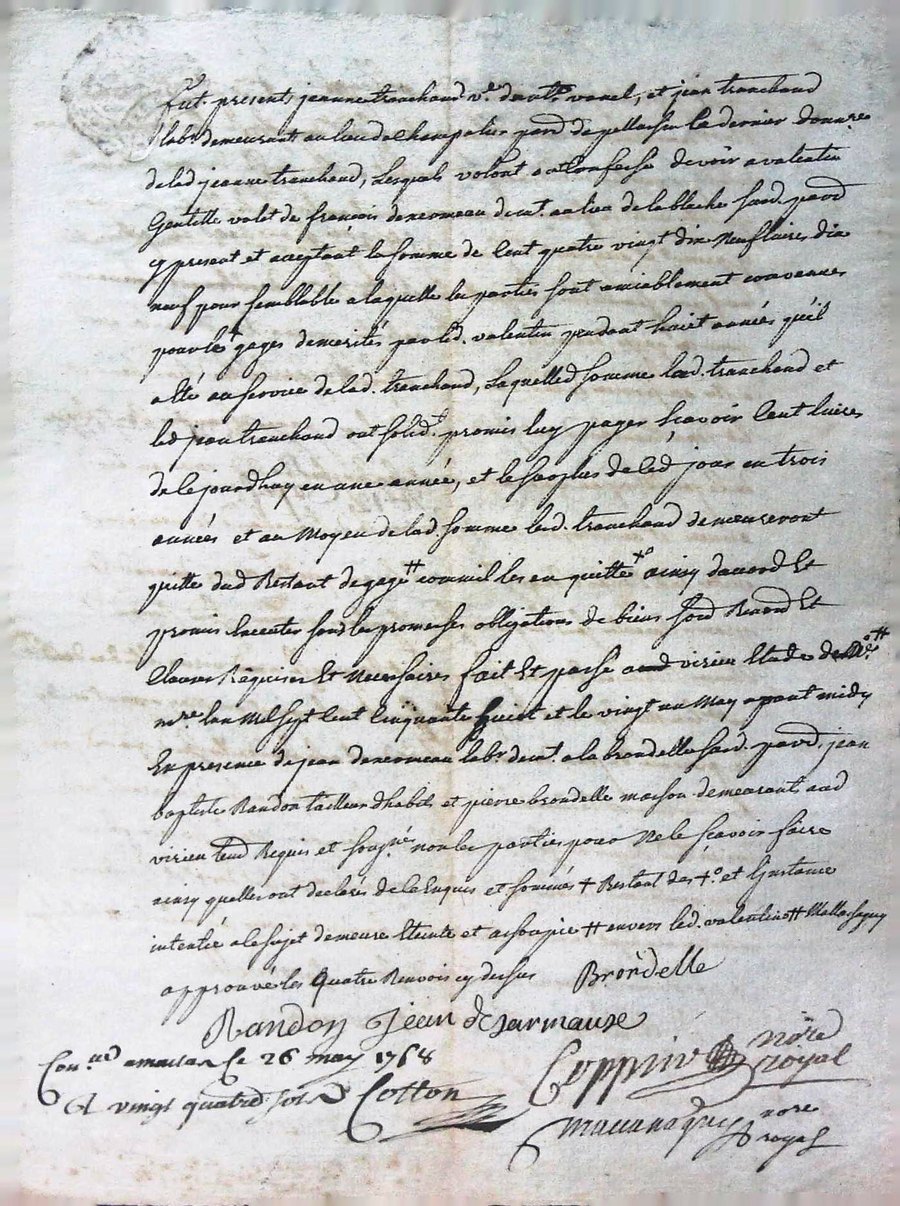 fut présents jeanne tranchand v.e de ant.e vanel, et jean tranchand
lab.r demeurants au lieu de champolier par.d de pellassu le dernier donn.re
de lad jeanne tranchand, lesquels volont. ont confessé devoir a valentin
Gentille valet de françois dexermeau dem.t au lieu de la bleche sard. par.d
cy present et acceptant la somme de Cent quatre vingt dix Neuf livres dix
neuf pour semblable a laquelle les parties sont amiablement convenues
pour les gages demerités par led. valentin pendant huict années qu'il
a été au service de lad. tranchand, Laquelled somme lad. tranchand et
led jean tranchand ont solid.t promis luy payer scavoir Cent livres
de ce jourdhuy en une année, et le surplus de ced jour en trois
années et au Moyen de lad. somme led. tranchand demeureront
quitte dud Restant de gage # comm'il les en quitte +° ainsy daccord Et
promis Executer sous les promesses obligations de biens soud Renond Et
Clauses Requises Et Necessaires fait Et passé aud virieu Etude de M.e #
n.re lan Mil sept cent Cinquante huict et le vingt un May apant midy
En presence de jean dexermeau lab.r dem.t a la brondelle sard. par.d, jean
baptiste Randon tailleur dhabits et pierre brondelle masson demeurant aud
virieu tem.d Requis et soug.né non les parties pour Ne le scavoir faire
ainsy quelles ont declarés de ce Enquis et sommés + Restant des +° et Linstance
intentée a le sujet demeure Eteinte et assoupie # envers led. valentin # Mallassagny
approuvé les Quatre Renvois cy dessus Brondelle
Randon Jean de sarmause
Con.lé a 26 may 1758
A vingt quatre sols Cotton
Coppin nore royal
nore royal